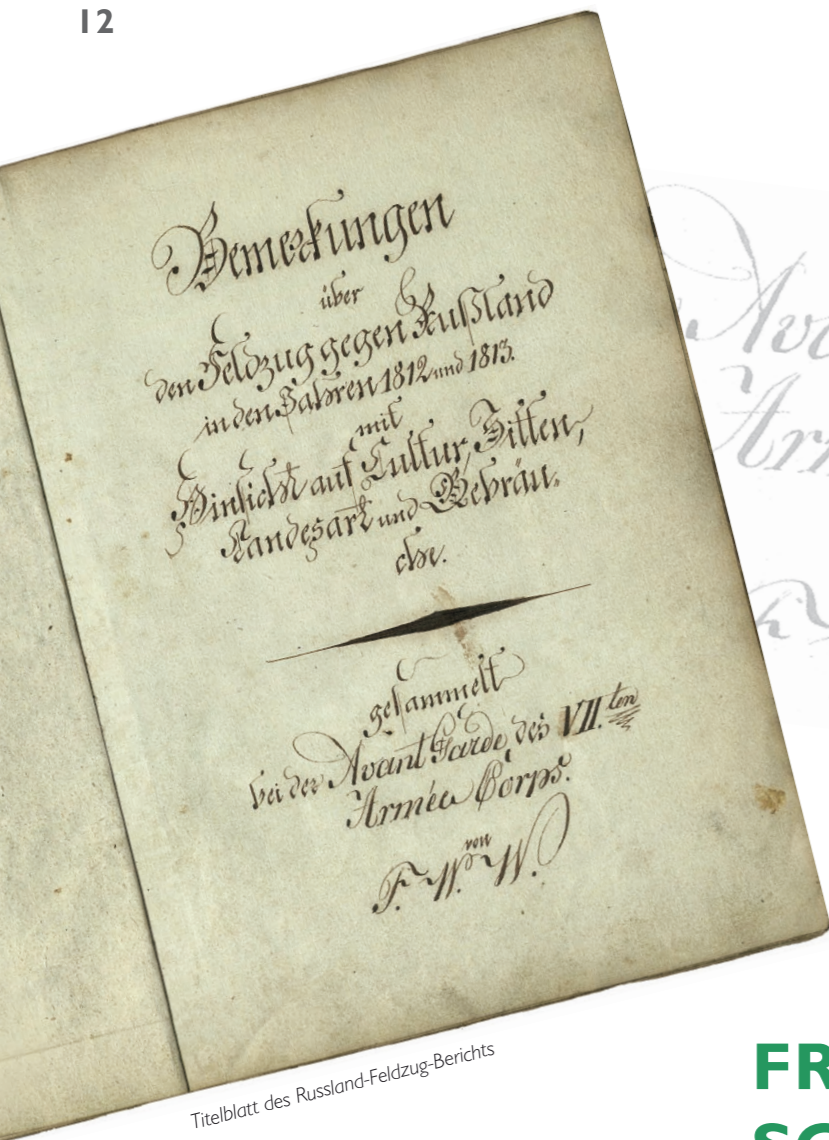 12
Bemerkungen
über
den Feldzug gegen Rußland
in den Jahren 1812 und 1813.
mit
Hinsicht auf Cultur, Sitten,
Landesart und Gebräu-
che.
gesammelt
bei der Avant Garde des VII.ten
Armée Corps.
von
F. W. W.
Titelblatt des Russland-Feldzug-Berichts
Avo
Arm
FR
SC